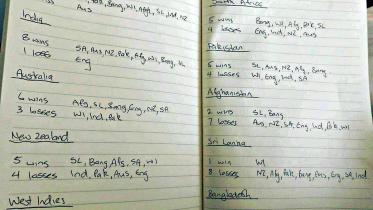 Pak, Bang, WI, Afg, SL, Ind, NZ
Aus
India
8 wins SA, Aus, NZ, Pak, Afg, WI, Bang, SL
1 loss Eng
Australia
6 wins Afg, SL, Bang, Eng, NZ, SA
3 losses WI, Ind, Pak
New Zealand
5 wins SL, Bang, Afg, SA, WI
4 losses Ind, Pak, Aus, Eng
West Indies
South Africa
5 wins Bang, WI, Afg, Pak, SL
4 losses Eng, Ind, NZ, Aus
Pakistan
5 wins SL, Aus, NZ, Afg, Bang
4 losses WI, Eng, Ind, SA
Afghanistan
2 wins SL, Bang
7 losses Aus, NZ, SA, Eng, Ind, Pak, WI
Sri Lanka
1 win WI
8 losses NZ, Afg, Pak, Bang, Aus, Eng, SA, Ind
Bangladesh